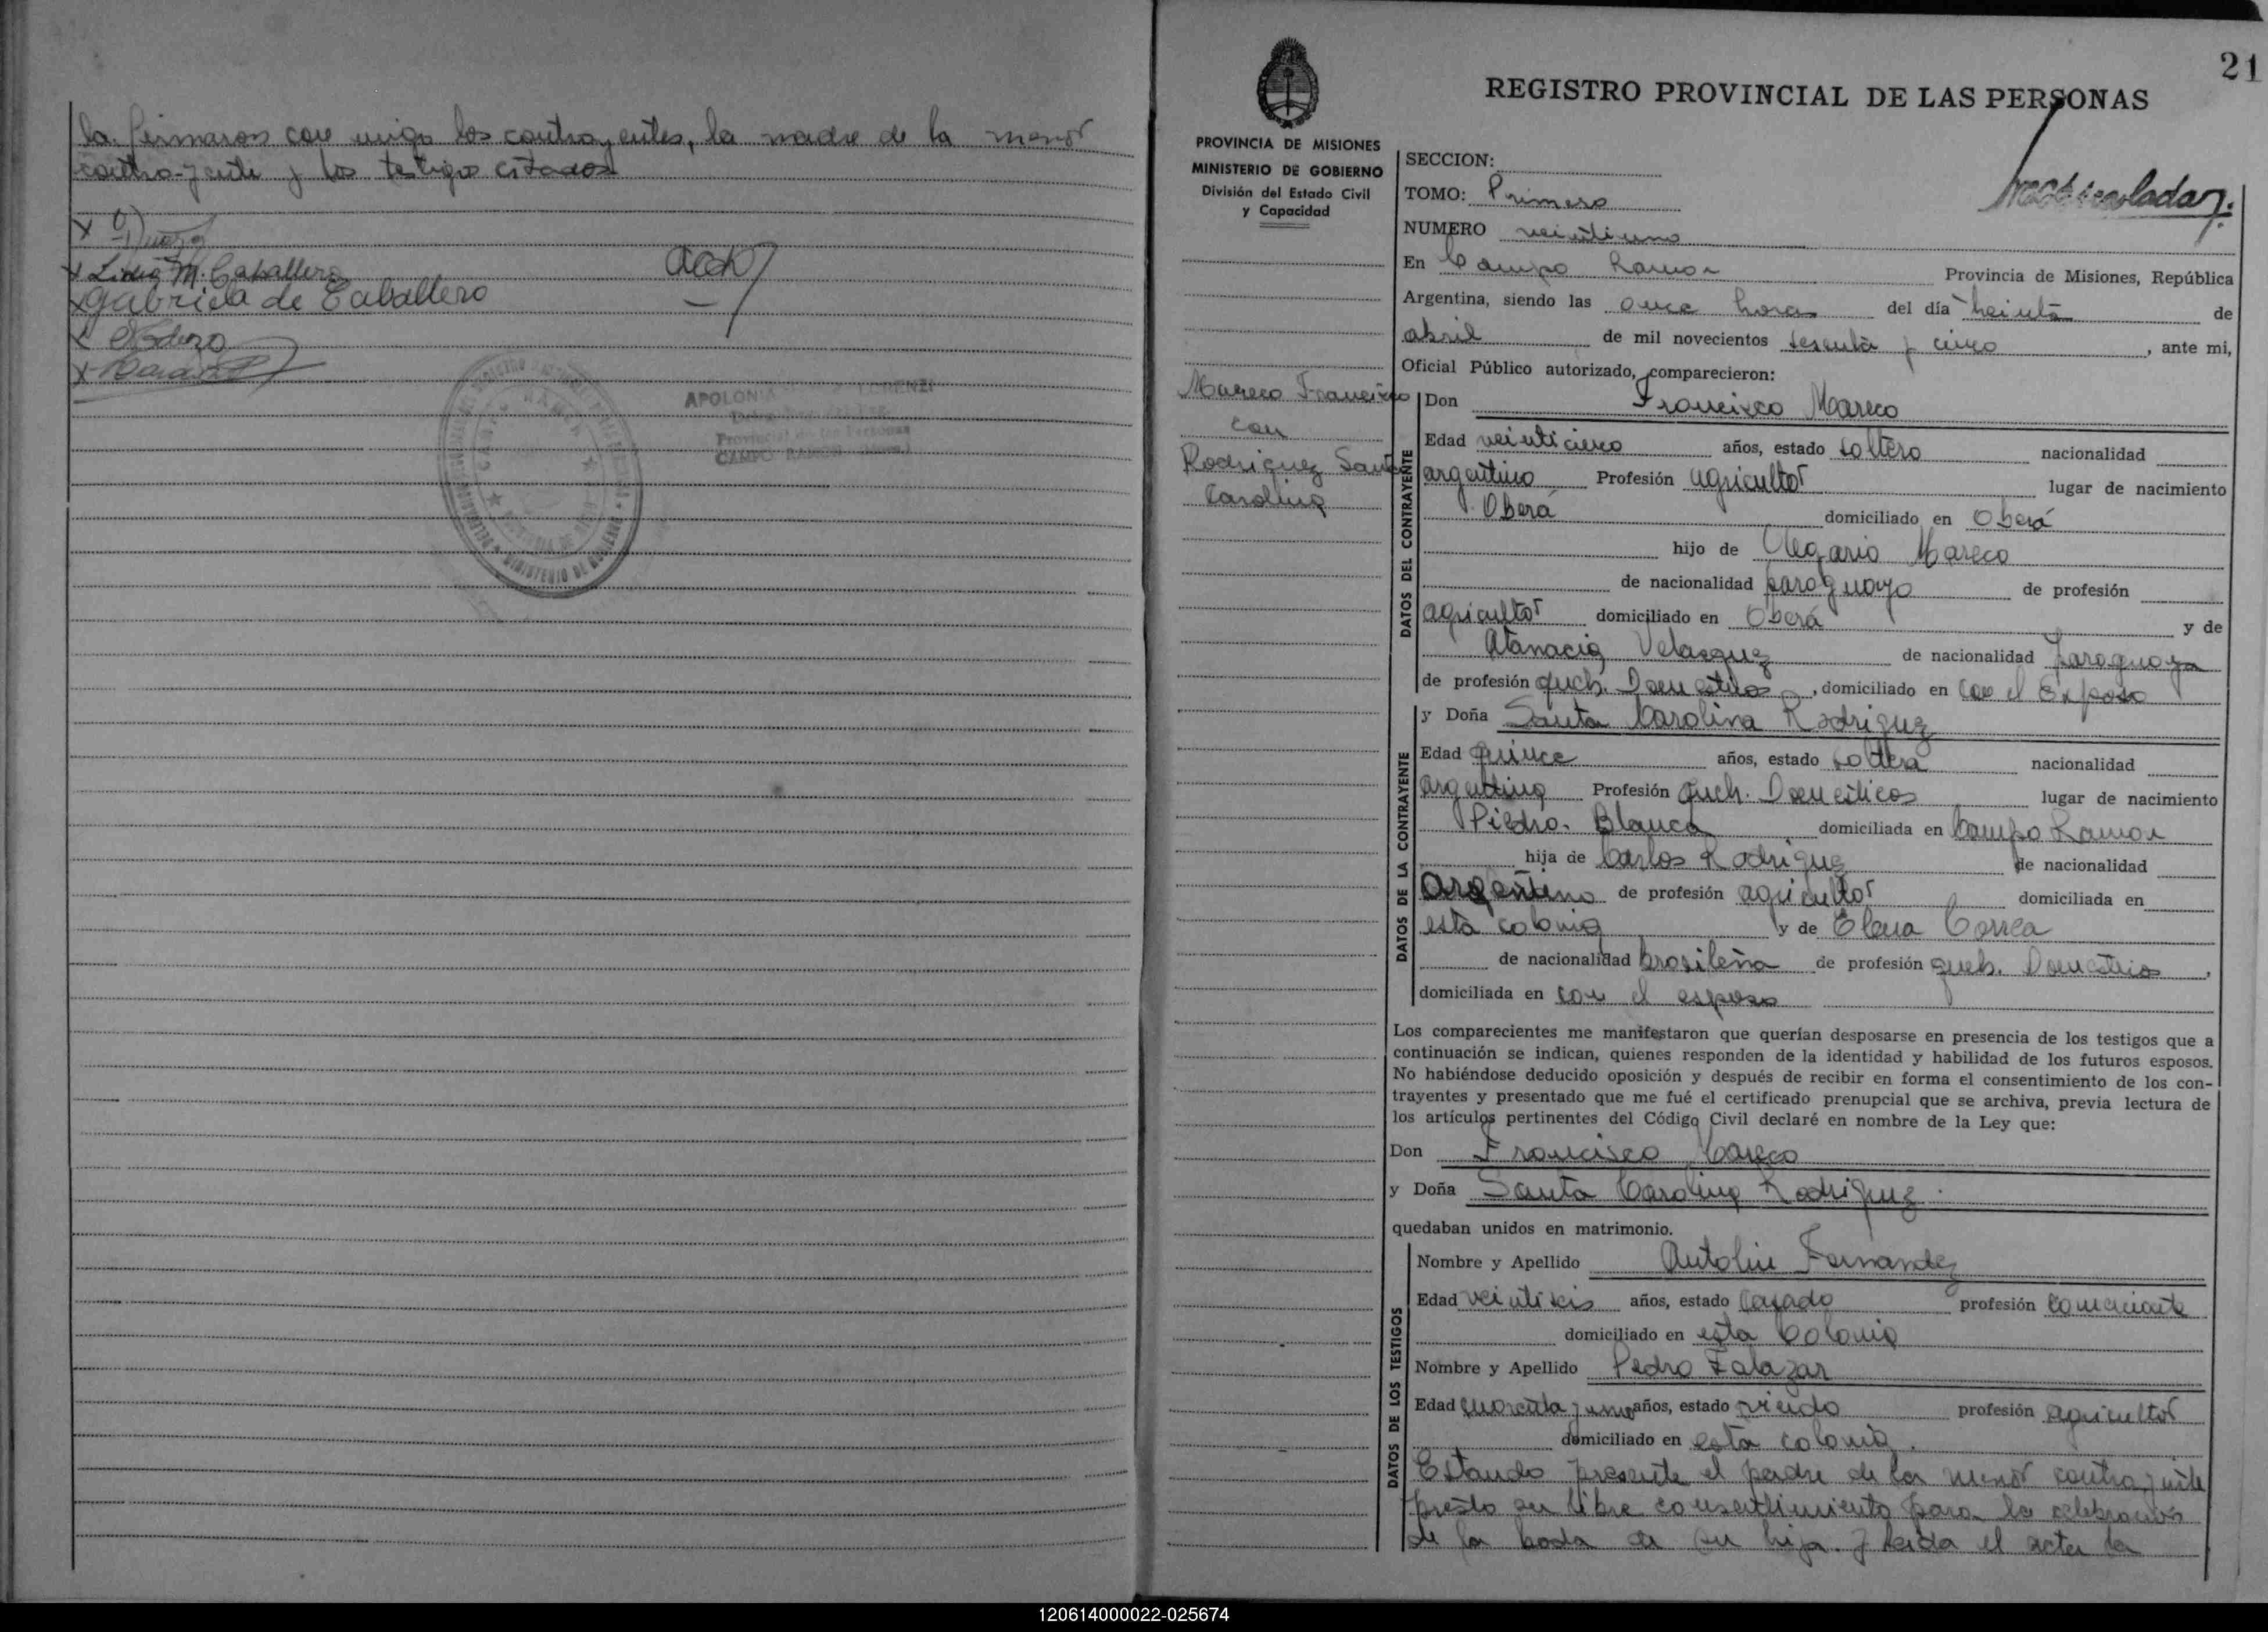 la firmaron con migo los contrayentes, la madre de la menor
contra-yente y los testigos citados
x
x Lidia M. Caballero
x Gabriela de Caballero
x
x
APOLONIA
CAMPO RAMON
MINISTERIO DE GOBIERNO
21
REGISTRO PROVINCIAL DE LAS PERSONAS
PROVINCIA DE MISIONES
MINISTERIO DE GOBIERNO
División del Estado Civil
y Capacidad
Mareco Francisco
con
Rodriguez Santa
Carolina
SECCION:
TOMO: Primero
NUMERO veintiuno
En Campo Ramon Provincia de Misiones, República
Argentina, siendo las once horas del día treinta de
abril de mil novecientos sesenta y cinco, ante mi,
Oficial Público autorizado, comparecieron:
DATOS DEL CONTRAYENTE
Don Francisco Mareco
Edad veinticinco años, estado soltero nacionalidad
argentino Profesión agricultor lugar de nacimiento
Oberá domiciliado en Oberá
hijo de Olegario Mareco
de nacionalidad paraguayo de profesión
agricultor domiciliado en Oberá y de
Atanacia Velasquez de nacionalidad paraguaya
de profesión queh. Domesticos, domiciliado en con el Esposo
DATOS DE LA CONTRAYENTE
y Doña Santa Carolina Rodriguez
Edad quince años, estado soltera nacionalidad
argentina Profesión queh. Domesticos lugar de nacimiento
Piedra Blanca domiciliada en Campo Ramon
hija de Carlos Rodriguez de nacionalidad
Argentino de profesión agricultor domiciliada en
esta colonia y de Elena Correa
de nacionalidad brasileña de profesión queh. Domesticos,
domiciliada en con el esposo
Los comparecientes me manifestaron que querían desposarse en presencia de los testigos que a
continuación se indican, quienes responden de la identidad y habilidad de los futuros esposos.
No habiéndose deducido oposición y después de recibir en forma el consentimiento de los con-
trayentes y presentado que me fué el certificado prenupcial que se archiva, previa lectura de
los artículos pertinentes del Código Civil declaré en nombre de la Ley que:
Don Francisco Mareco
y Doña Santa Carolina Rodriguez
quedaban unidos en matrimonio.
DATOS DE LOS TESTIGOS
Nombre y Apellido Antolin Fernandez
Edad veintiseis años, estado Casado profesión comerciante
domiciliado en esta Colonia
Nombre y Apellido Pedro Zalazar
Edad cuarenta y uno años, estado viudo profesión agricultor
domiciliado en esta colonia.
Estando presente el padre de la menor contrayente
presto su libre consentimiento para la celebracion
de la boda de su hija. y leida el acta la
120614000022-025674